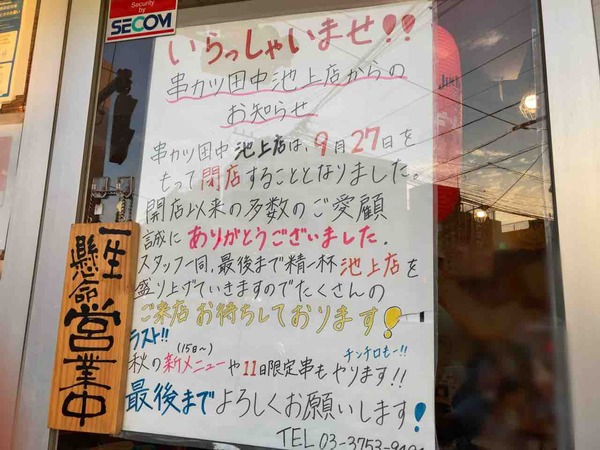 Security by
SECOM
いらっしゃいませ!!
串カツ田中池上店からの
お知らせ
串カツ田中池上店は、9月27日を
もって閉店することとなりました。
開店以来の多数のご愛顧
誠にありがとうございました.
スタッフ一同、最後まで精一杯池上店を
盛り上げていきますのでたくさんの
ご来店お待ちしております!
ラスト!!
(15日~)
チンチロもー!!
秋の新メニューや11日限定串もやります!!
最後までよろしくお願いします!
TEL 03-3753-
一生
懸命
営業中